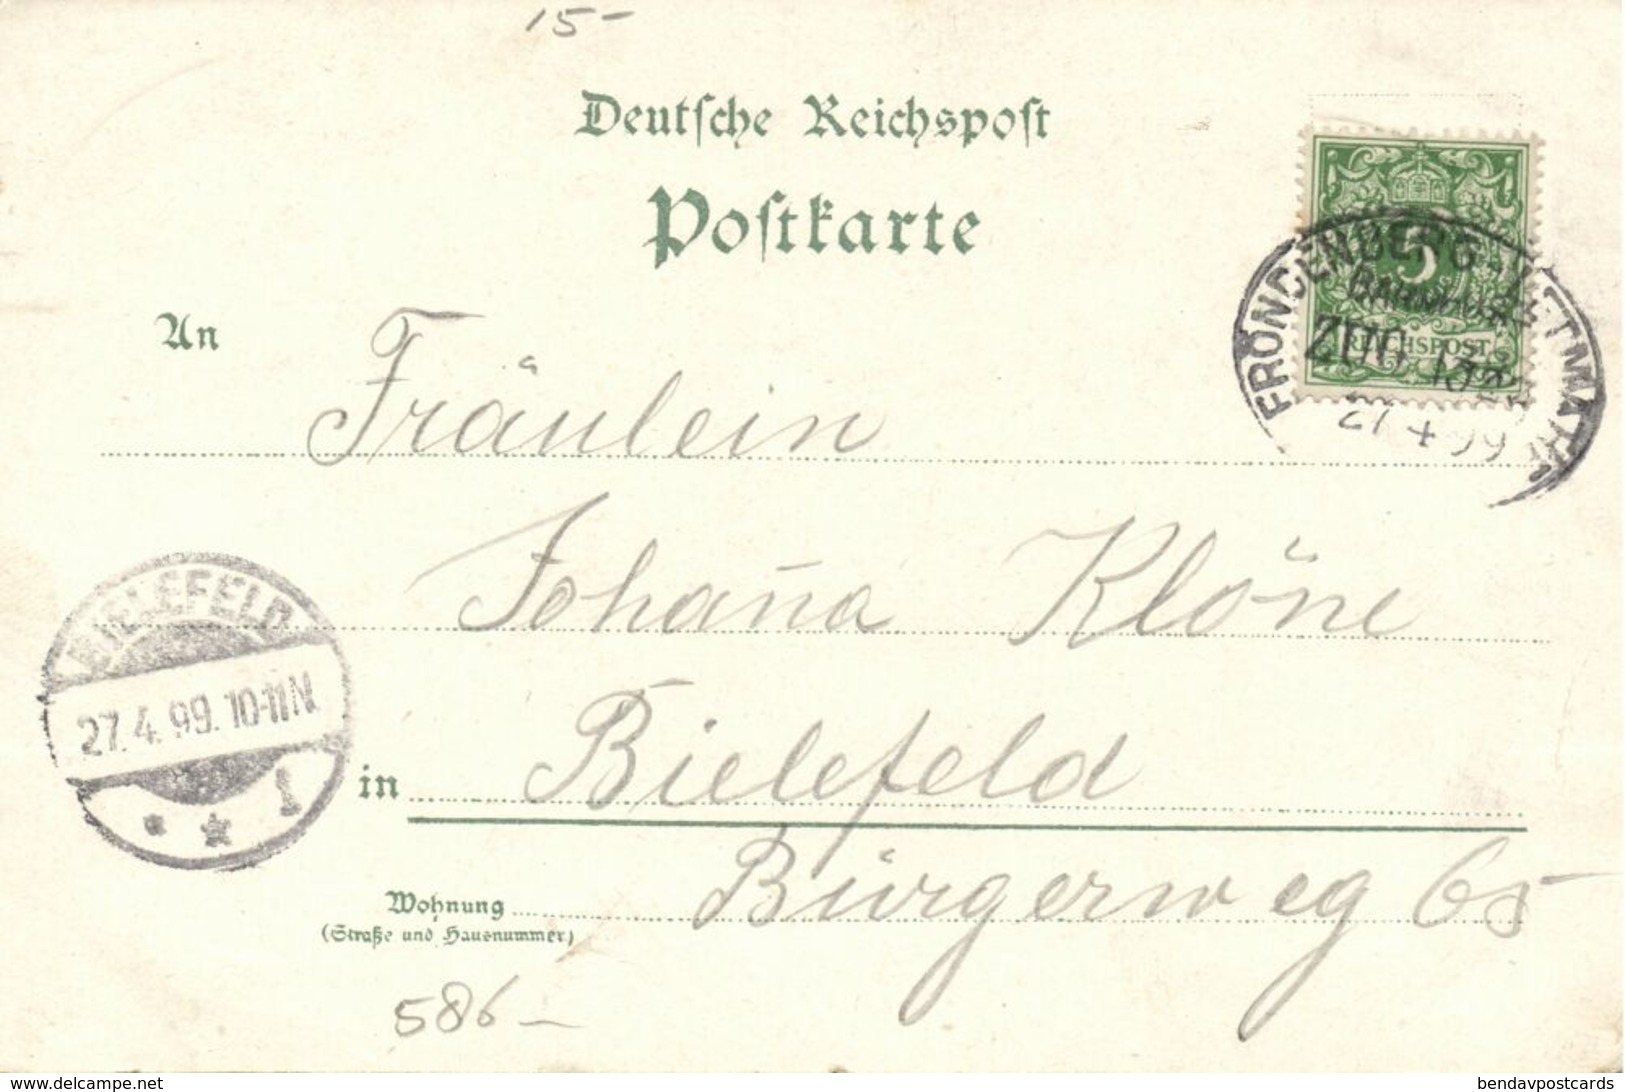 15-
Deutsche Reichspost
Postkarte
5
REICHSPOST
FRÖNDENBERG-
ZUG
27 4 99
An Fräulein
Johan̄a Klöne
BIELEFELD
27.4.99.10-11N.
1
in Bielefeld
Wohnung Bürgerweg 65
(Straße und Hausnummer)
586-
www.delcampe.net
bendavpostcards